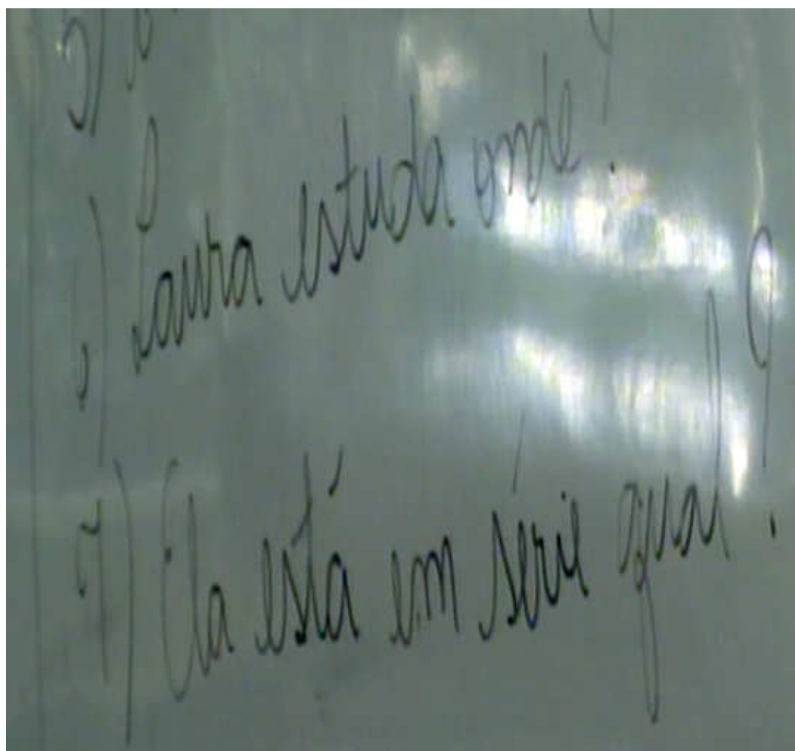 5)
) Laura estuda onde?
7) Ela está em série qual?